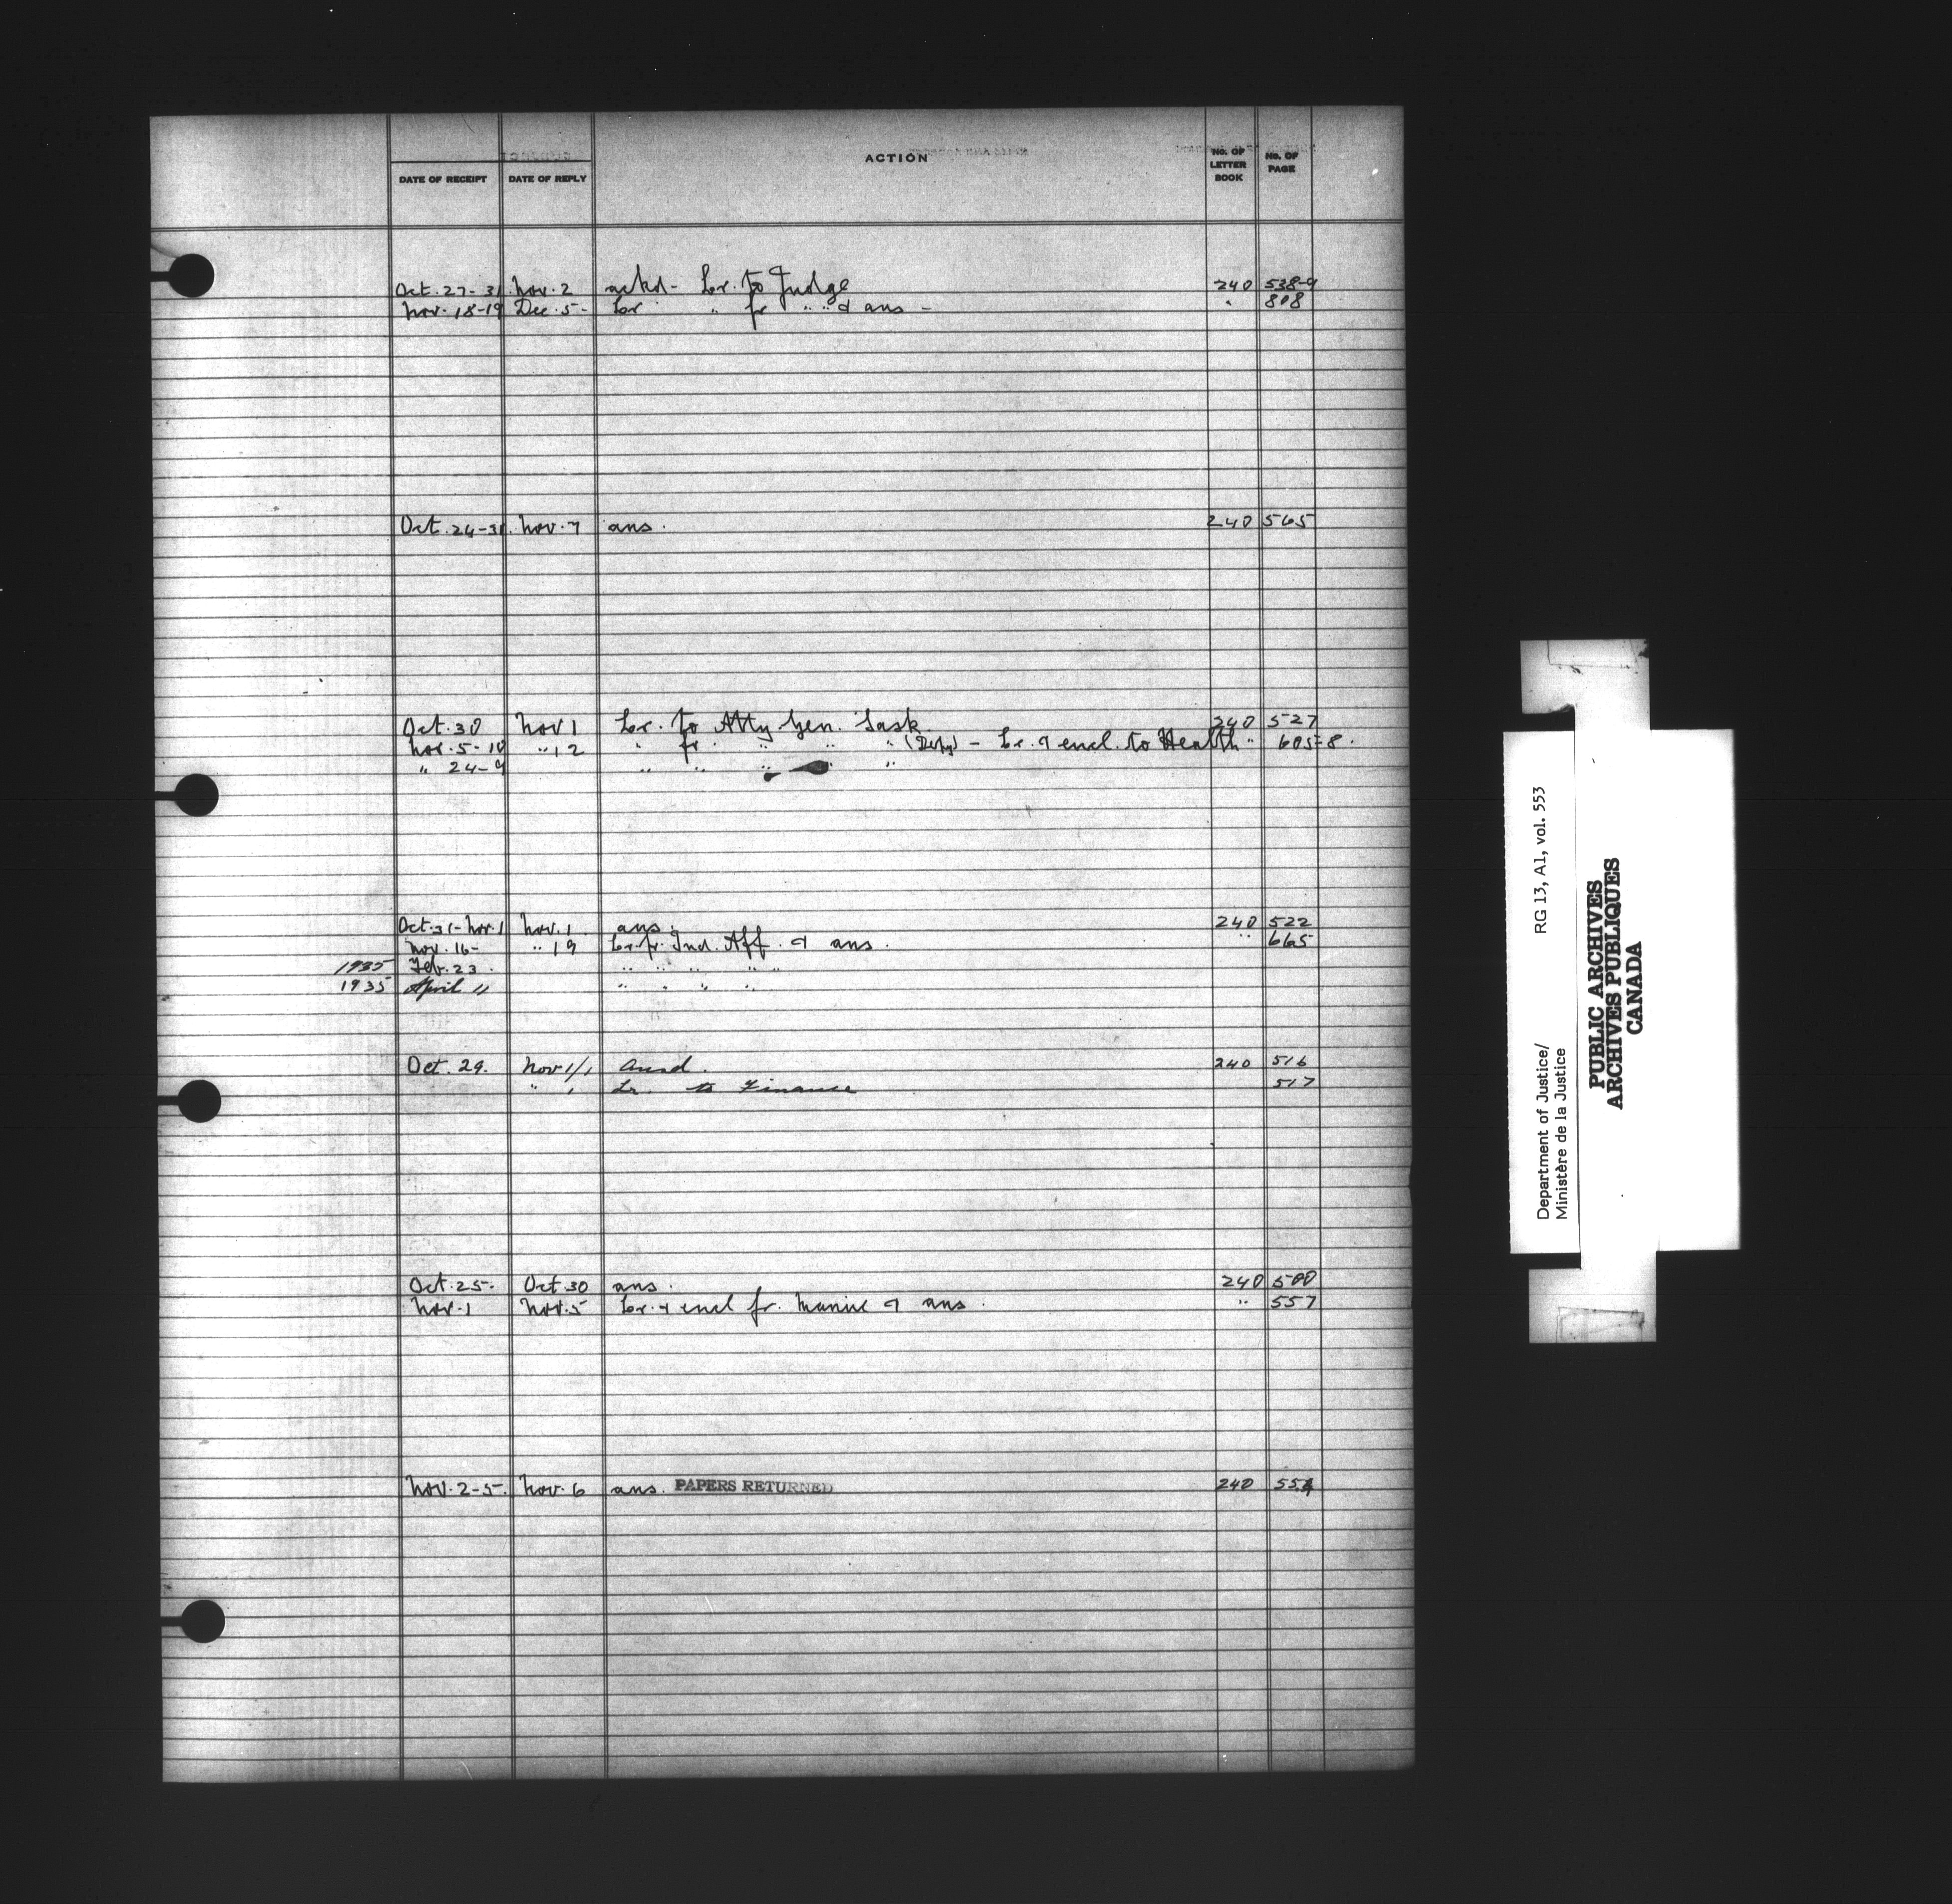 ACTION
No. OF LETTER BOOK
No. OF PAGE
DATE OF RECEIPT DATE OF REPLY
Oct. 27-31 Nov. 2 ackd - Lr. to Judge 240 538-9
Nov. 18-19 Dec. 5- Lr " fr " " & ans - " 808
Oct. 24-31. Nov. 7 ans. 240 565
Oct. 30 Nov 1 Lr. to Atty Gen. Sask. 240 527
Nov. 5-10 " 12 " fr. " " " (Depy) - Lr. & encl. to Health " 605-8.
" 24-9 " " " " "
Oct. 31- Nov. 1 Nov. 1 ans. 240 522
Nov. 16- " 19 Lr. fr. Ind. Aff. & ans. " 665
1935 Feb. 23. " " " " "
1935 April 11 " " " "
Oct. 29. Nov 1/1 Ansd. 240 516
" 1 Lr. to Finance 517
Oct. 25. Oct 30 ans. 240 500
Nov. 1 Nov. 5 Lr. & encl fr. Marine & ans. " 557
Nov. 2-5. Nov. 6 ans. PAPERS RETURNED 240
Department of Justice/ RG 13, A1, vol. 553
Ministère de la Justice
PUBLIC ARCHIVES
ARCHIVES PUBLIQUES
CANADA